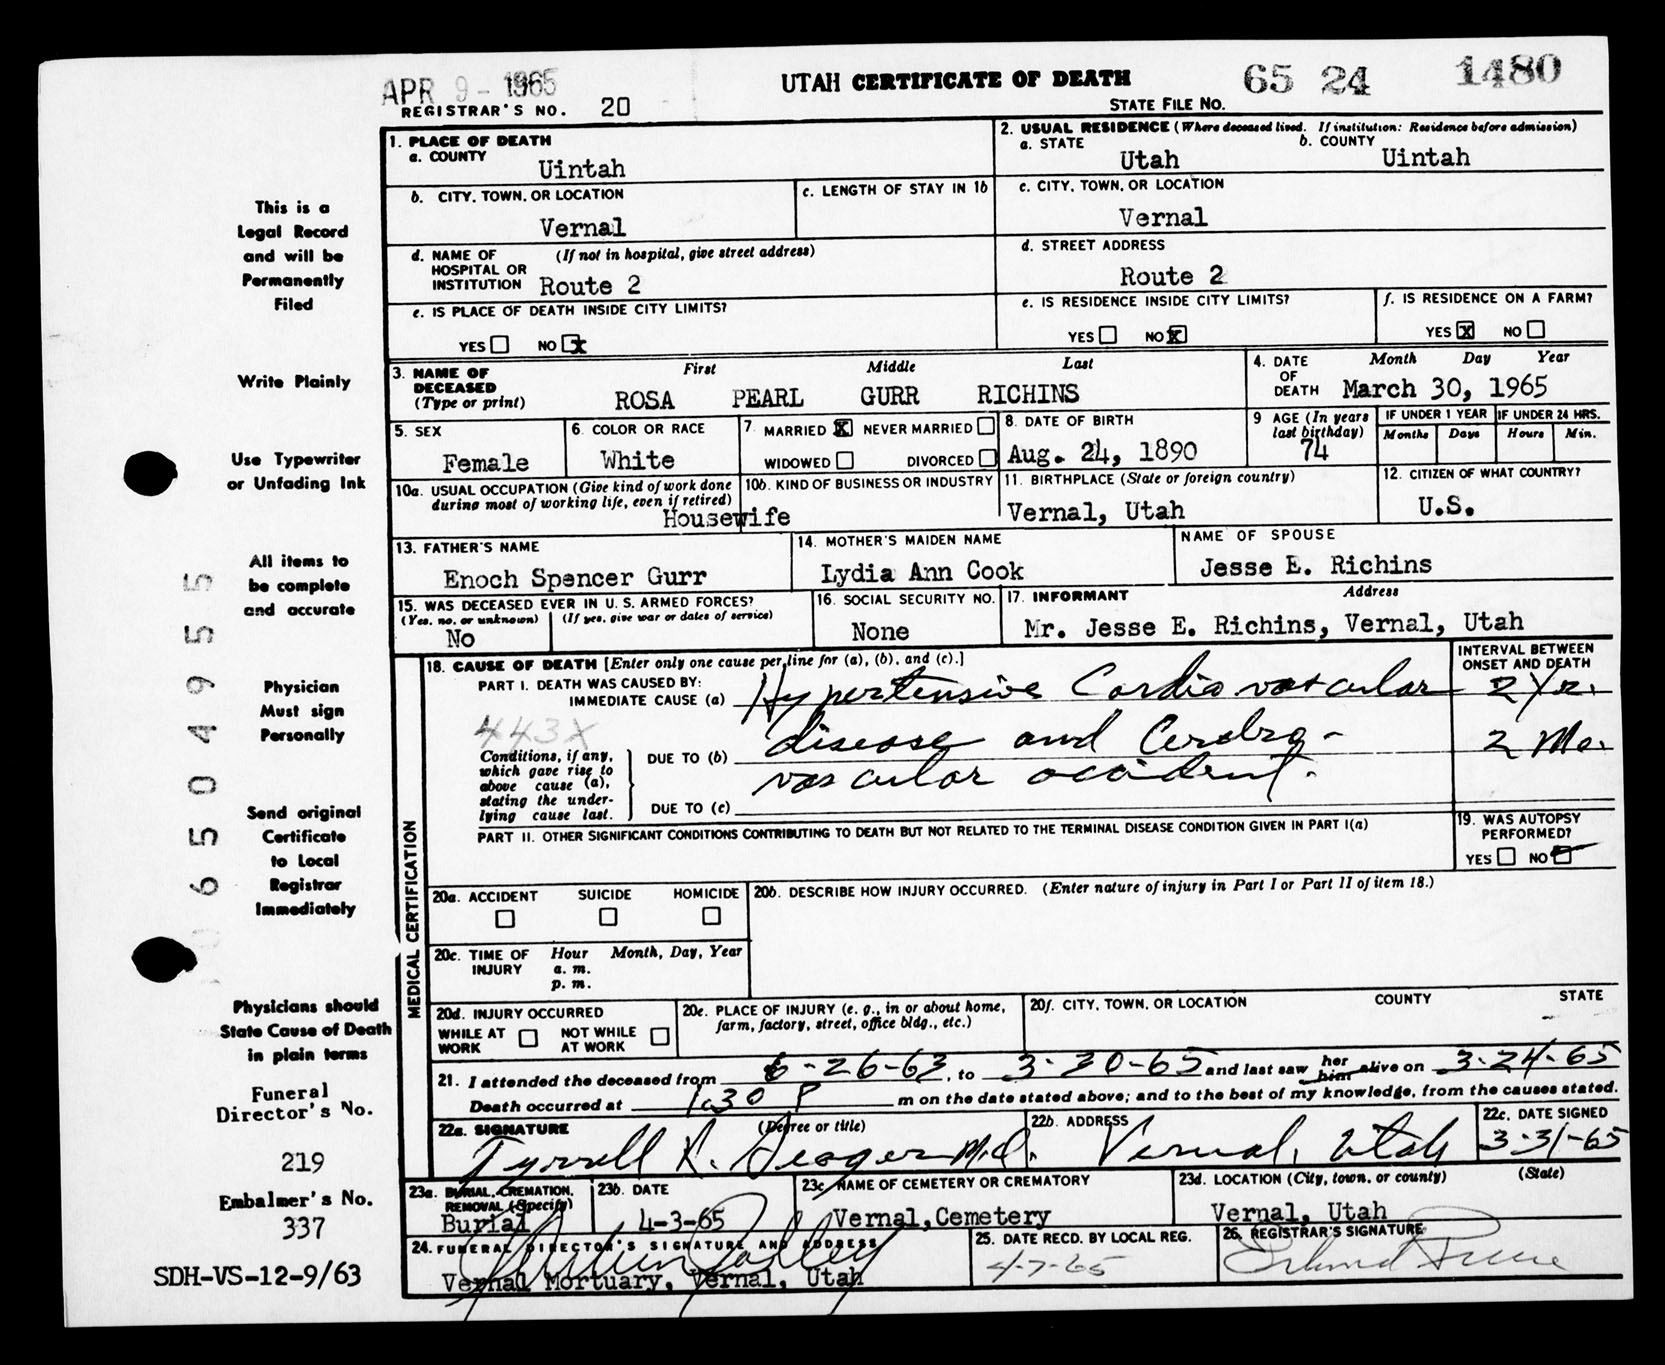 APR 9 - 1965
UTAH CERTIFICATE OF DEATH
65 24 1480
REGISTRAR'S NO. 20
STATE FILE NO.
1. PLACE OF DEATH
a. COUNTY
Uintah
2. USUAL RESIDENCE (Where deceased lived. If institution: Residence before admission)
a. STATE
Utah
b. COUNTY
Uintah
b. CITY, TOWN, OR LOCATION
Vernal
c. LENGTH OF STAY IN 1b
c. CITY, TOWN, OR LOCATION
Vernal
d. NAME OF HOSPITAL OR INSTITUTION
(If not in hospital, give street address)
Route 2
d. STREET ADDRESS
Route 2
e. IS PLACE OF DEATH INSIDE CITY LIMITS?
YES NO X
e. IS RESIDENCE INSIDE CITY LIMITS?
YES NO X
f. IS RESIDENCE ON A FARM?
YES X NO
3. NAME OF DECEASED
(Type or print)
First Middle Last
ROSA PEARL GURR RICHINS
4. DATE OF DEATH
Month Day Year
March 30, 1965
5. SEX
Female
6. COLOR OR RACE
White
7. MARRIED X NEVER MARRIED
WIDOWED DIVORCED
8. DATE OF BIRTH
Aug. 24, 1890
9 AGE (In years last birthday)
74
IF UNDER 1 YEAR
Months Days
IF UNDER 24 HRS.
Hours Min.
10a. USUAL OCCUPATION (Give kind of work done during most of working life, even if retired)
Housewife
10b. KIND OF BUSINESS OR INDUSTRY
11. BIRTHPLACE (State or foreign country)
Vernal, Utah
12. CITIZEN OF WHAT COUNTRY?
U.S.
13. FATHER'S NAME
Enoch Spencer Gurr
14. MOTHER'S MAIDEN NAME
Lydia Ann Cook
NAME OF SPOUSE
Jesse E. Richins
15. WAS DECEASED EVER IN U. S. ARMED FORCES?
(Yes, no, or unknown) (If yes, give war or dates of service)
No
16. SOCIAL SECURITY NO.
None
17. INFORMANT Address
Mr. Jesse E. Richins, Vernal, Utah
MEDICAL CERTIFICATION
18. CAUSE OF DEATH [Enter only one cause per line for (a), (b), and (c).]
INTERVAL BETWEEN ONSET AND DEATH
PART I. DEATH WAS CAUSED BY:
IMMEDIATE CAUSE (a) Hypertensive Cardio vascular 2 Yr.
443X
Conditions, if any, which gave rise to above cause (a), stating the underlying cause last.
DUE TO (b) disease and Cerebro- 2 Mo.
vascular accident.
DUE TO (c)
PART II. OTHER SIGNIFICANT CONDITIONS CONTRIBUTING TO DEATH BUT NOT RELATED TO THE TERMINAL DISEASE CONDITION GIVEN IN PART I(a)
19. WAS AUTOPSY PERFORMED?
YES NO
20a. ACCIDENT SUICIDE HOMICIDE
20b. DESCRIBE HOW INJURY OCCURRED. (Enter nature of injury in Part I or Part II of item 18.)
20c. TIME OF INJURY
Hour Month, Day, Year
a. m.
p. m.
20d. INJURY OCCURRED
WHILE AT WORK NOT WHILE AT WORK
20e. PLACE OF INJURY (e. g., in or about home, farm, factory, street, office bldg., etc.)
20f. CITY, TOWN, OR LOCATION COUNTY STATE
21. I attended the deceased from 6-26-63, to 3-30-65 and last saw her him alive on 3-24-65
Death occurred at 1:30 P m on the date stated above; and to the best of my knowledge, from the causes stated.
22a. SIGNATURE (Degree or title)
Tyrrell R. Seager M.D.
22b. ADDRESS
Vernal, Utah
22c. DATE SIGNED
3-31-65
23a. BURIAL, CREMATION, REMOVAL (Specify)
Burial
23b. DATE
4-3-65
23c. NAME OF CEMETERY OR CREMATORY
Vernal, Cemetery
23d. LOCATION (City, town, or county) (State)
Vernal, Utah
24. FUNERAL DIRECTOR'S SIGNATURE AND ADDRESS
Vernal Mortuary, Vernal, Utah
25. DATE RECD. BY LOCAL REG.
4-7-65
26. REGISTRAR'S SIGNATURE
This is a
Legal Record
and will be
Permanently
Filed
Write Plainly
Use Typewriter
or Unfading Ink
All items to
be complete
and accurate
Physician
Must sign
Personally
Send original
Certificate
to Local
Registrar
Immediately
Physicians should
State Cause of Death
in plain terms
Funeral
Director's No.
219
Embalmer's No.
337
SDH-VS-12-9/63
0 6 5 0 4 9 5 5